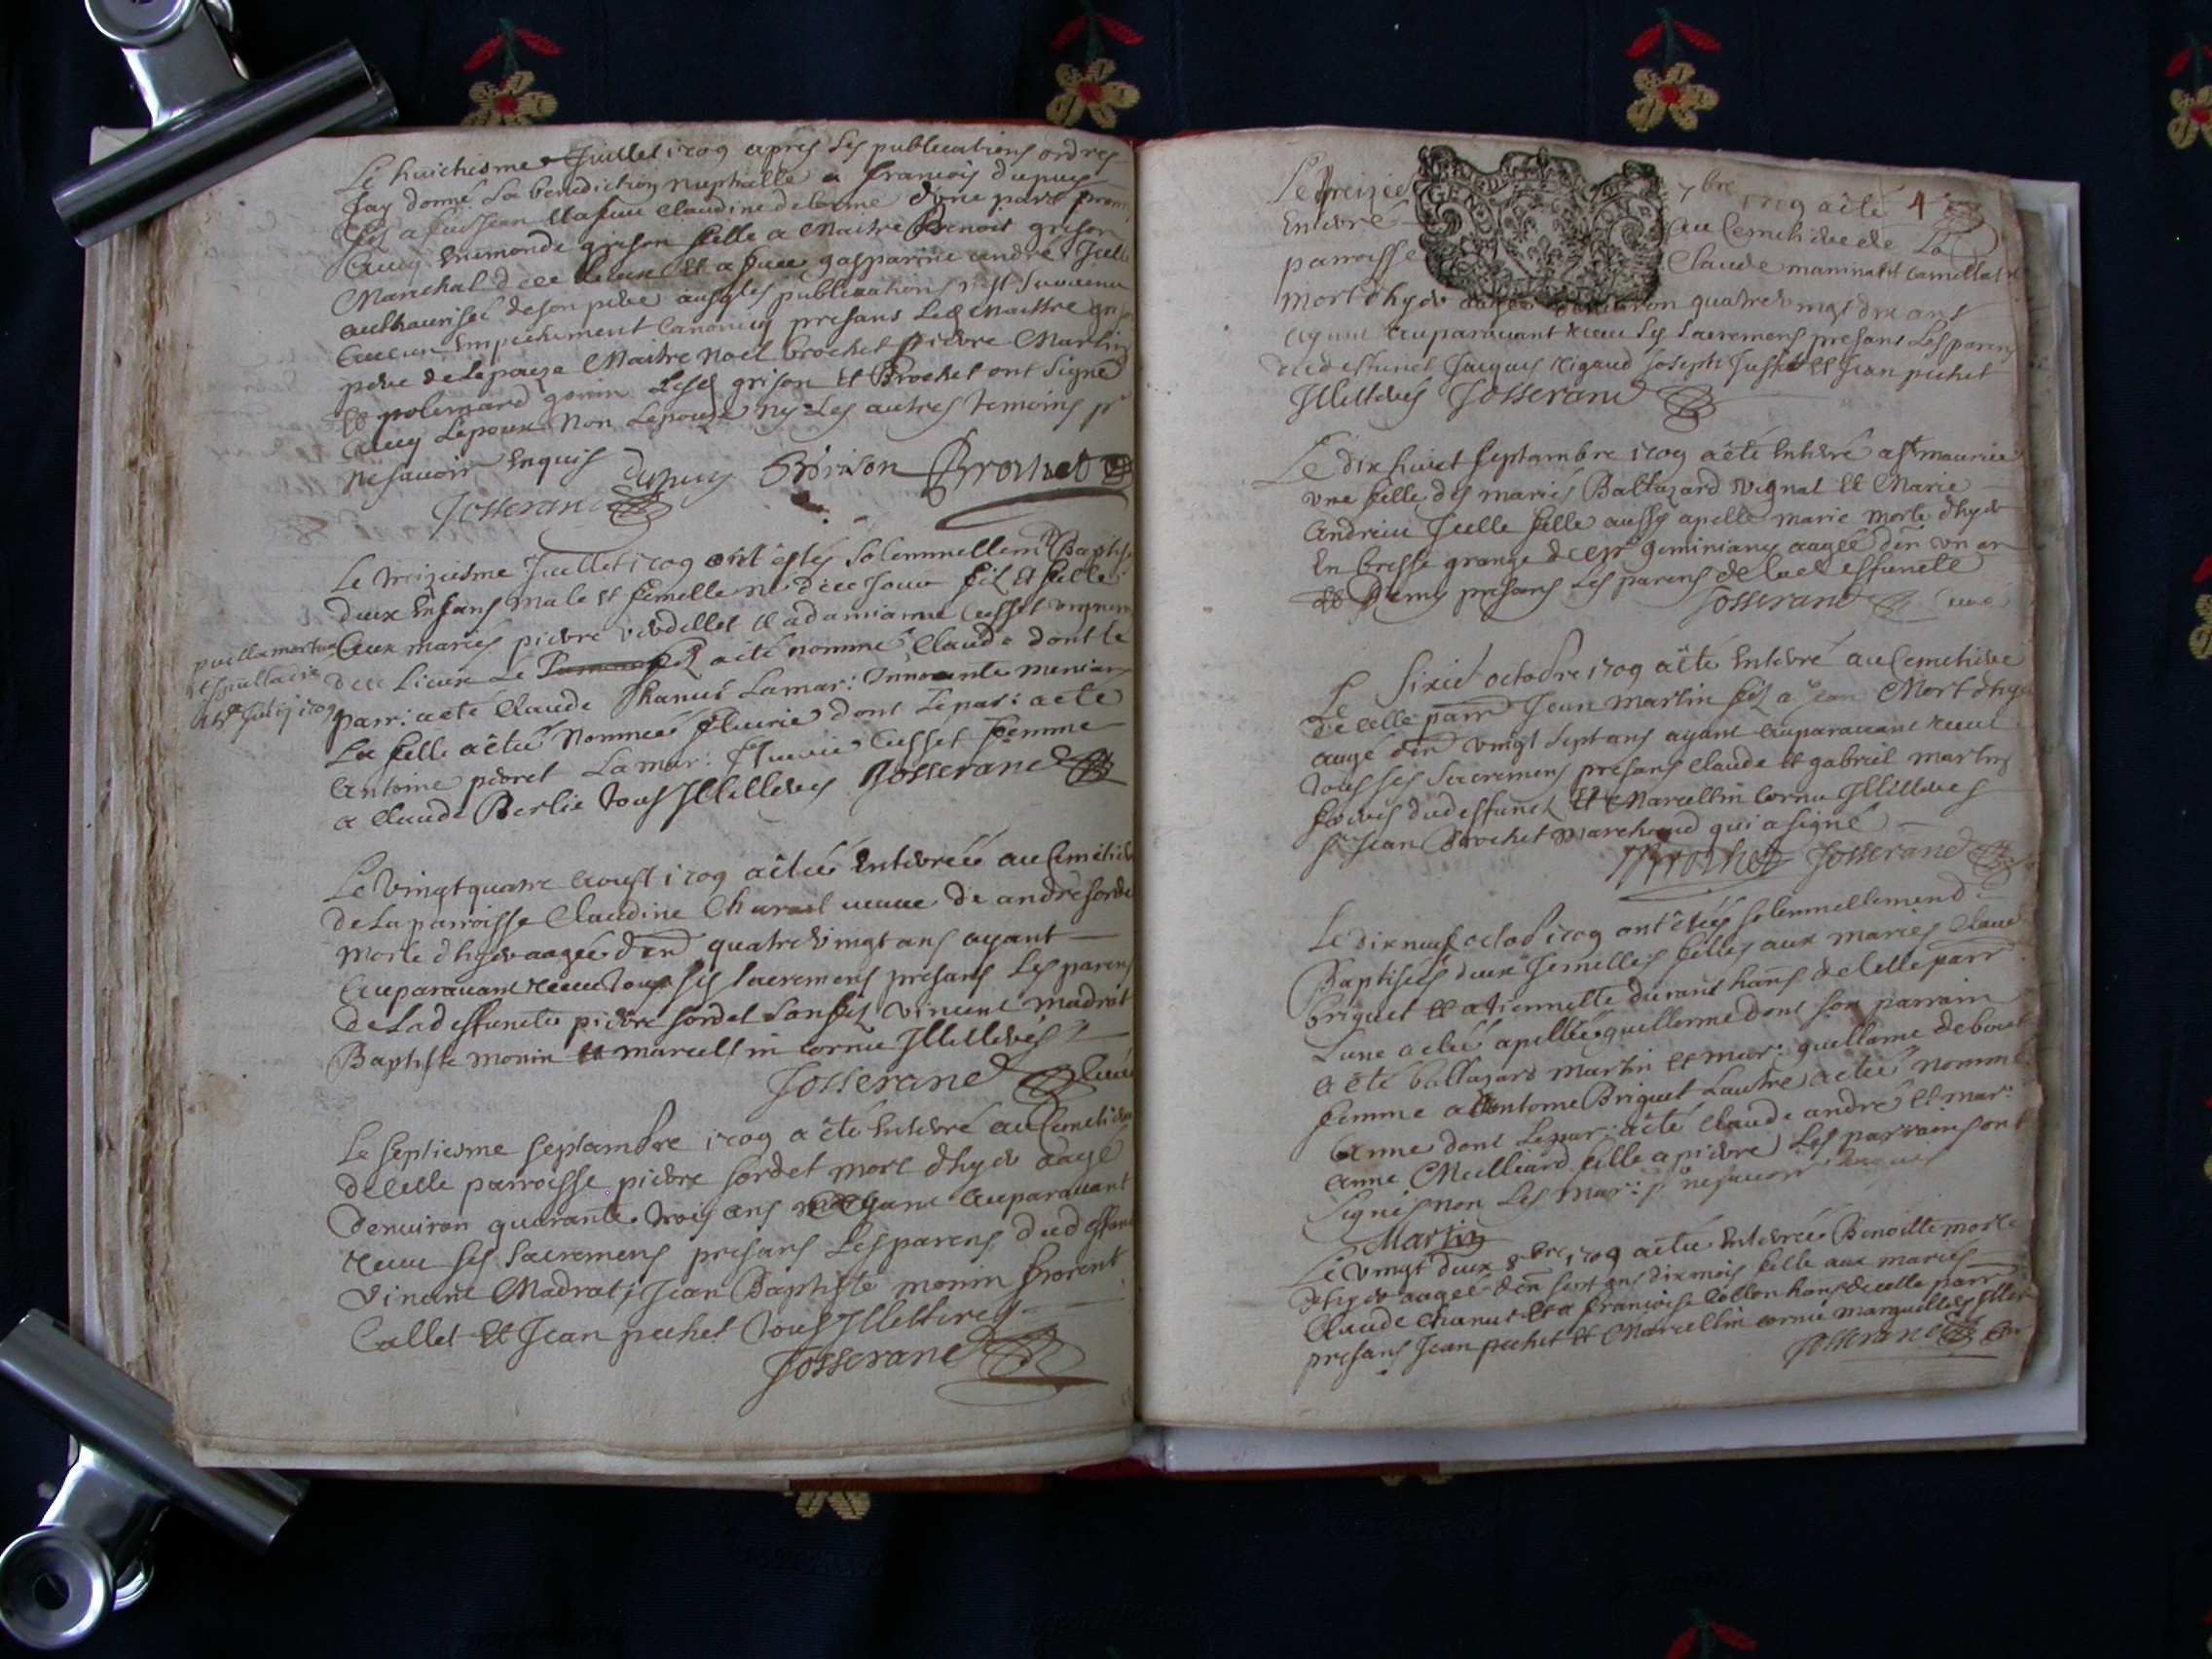 Le huictiesme Juillet 1709 apres les publications ordres
Jay donné la benediction nuptialle a francois dupuy
filz a feu Jean et a feue Claudine delorme d'une part
avec enemonde grison fille a Maitre Benoit grison
Mareschal dece lieux et a feue gasparine andré Jcelle
authaurisée de son pere ausqles publications n'est survenu
aucun empechement Canonicq presans led Maittre
pere de Lepouze Maitre noel brochet pierre Martin
et polemard gonin Lesd grison et Brochet ont signé
avec Lepoux Non Lepouze ny Les autres temoins pr
ne savoir enquis dupuy Grison Brochet
Josserand
Le treiziesme Juillet 1709 ont estés solemnellemt Baptise
deux enfans male et femelle né dece Jour filz et fille
aux mariés pierre verdellet et
puella mortua
dece Lieux Le filz a été nommé Claude dont le
parr: a été Claude Chanut La mar: Innocente
La fille a étée Nommée fleurie dont Le par: a été
Antoine La mar: fleurie Cusset femme
a Claude Berlie tous Jllitterés Josserand
Le vingt quatre Aoust 1709 a étée enterrée au Cemetier
de La parroisse Claudine veuve de andré sordet
morte d'hyer aagée d'en quatre vingt ans ayant
Auparavant receu tous ses sacremens presans Les parens
de Lad deffuncte pierre sordet son filz vincent madrat
Baptiste monin et marcellin cornu Jllitterés
Josserand Curé
Le septiesme septambre 1709 a été enterré au Cemetier
decelle parroisse pierre sordet mort d'hyer aagé
d'environ quarante trois ans ayant Auparavant
receu ses sacremens presans Les parens dud deffunt
vincent Madrat, Jean Baptiste monin florent
Collet et Jean pechet tous Jllitterés
Josserand
Le treizie 7bre 1709 a été 4
enterré au Cemetiere de La
parroisse Claude
mort d'hyer aagé d'environ quatre vingt dix ans
ayant auparavant receu ses sacremens presans Les parens
dud deffunct Jacques rigaud Joseph Juffet et Jean pechet
Jllitterés Josserand
Le dix huict septambre 1709 a été enterré a st maurice
une fille des mariés Baltazard vignat et Marie
Andrieu Jcelle fille aussy apellé marie morte d'hyer
en bresse grange de mr geminiany aagée d'en un an
et demy presans Les parens de lad deffuncte
Josserand Curé
Le sixie octobre 1709 a été enterré au Cemetiere
de celle parr Jean martin filz a Jean Mort d'hyer
aagé d'en vingt sept ans ayant auparavant receu
tous ses sacremens presans Claude et gabriel martin
freres dud deffunct et Marcellin Cornu Jllitteres
sr Jean Brochet marchand qui a signé
Brochet Josserand
Le dix neuf octob 1709 ont étées solemnellement
Baptisées deux Jemelles filles aux mariés Claude
briquet et a etiennette durant hans de Celle parr
Lune a été apellée guillerme dont son parrain
a été baltazard martin et mar: guillame
femme a Antoine Briquet Lautre a étée nommé
Anne dont Le par: a été Claude andré et mar:
anne Meilliard fille a pierre Les parrains ont
signés non Les mar: pr ne savoir enquis
Martin
Le vingt deux 8bre 1709 a étée enterrée Benoitte morte
d'hyer aagée d'en sept ans dix mois fille aux mariés
Claude Chanut et a francoise Collon hans de celle parr
presans Jean pechet et Marcellin cornu marguilliers Jller
Josserand